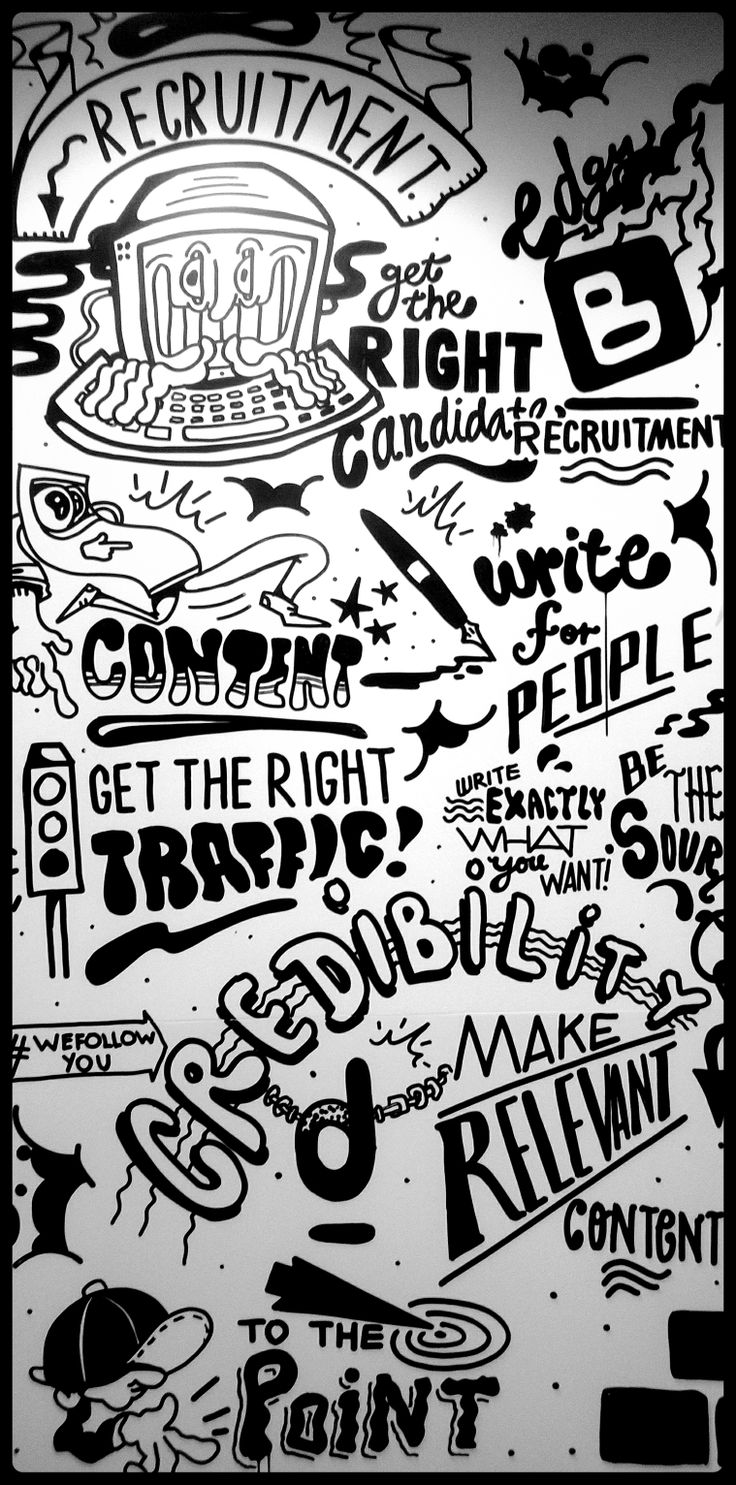 RECRUITMENT.
get
the
RIGHT
Candidate
edgy
B
RECRUITMENT
CONTENT
write
for
PEOPLE
GET THE RIGHT
TRAFFIC!
WRITE
EXACTLY
WHAT
you
WANT!
BE
THE
SOUR
CREDIBILITY
#WEFOLLOW
YOU
d
MAKE
RELEVANT
CONTENT
TO THE
POINT